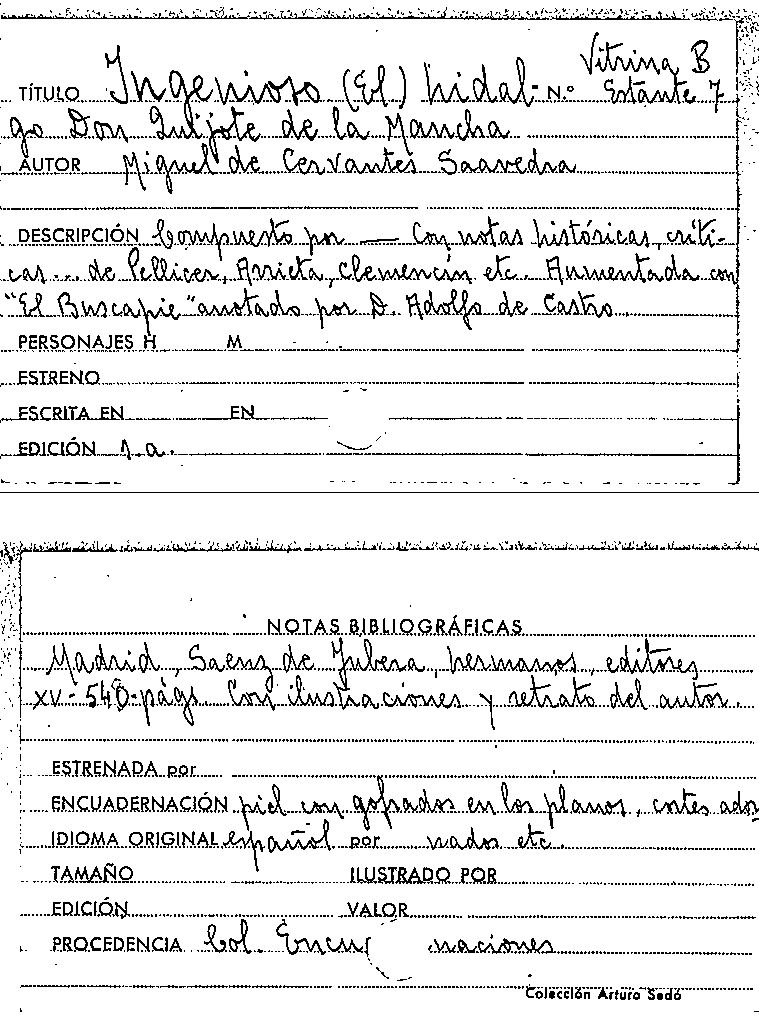 Vitrina B
TÍTULO Ingenioso (El) hidal- N.º Estante 7
go Don Quijote de la Mancha
AUTOR Miguel de Cervantes Saavedra
DESCRIPCIÓN Compuesto por — Con notas históricas, críti-
cas... de Pellicer, Arrieta, Clemencín etc. Aumentada con
"El Buscapie" anotado por D. Adolfo de Castro.
PERSONAJES H M
ESTRENO
ESCRITA EN EN
EDICIÓN 1.a.
NOTAS BIBLIOGRÁFICAS
Madrid, Saenz de Jubera, hermanos, editores
XV-540-págs. Con ilustraciones y retrato del autor.
ESTRENADA por
ENCUADERNACIÓN piel con gofrados en los planos, cortes ador
IDIOMA ORIGINAL español por nados etc.
TAMAÑO ILUSTRADO POR
EDICIÓN VALOR
PROCEDENCIA Col. Encu naciones
Colección Arturo Sedó